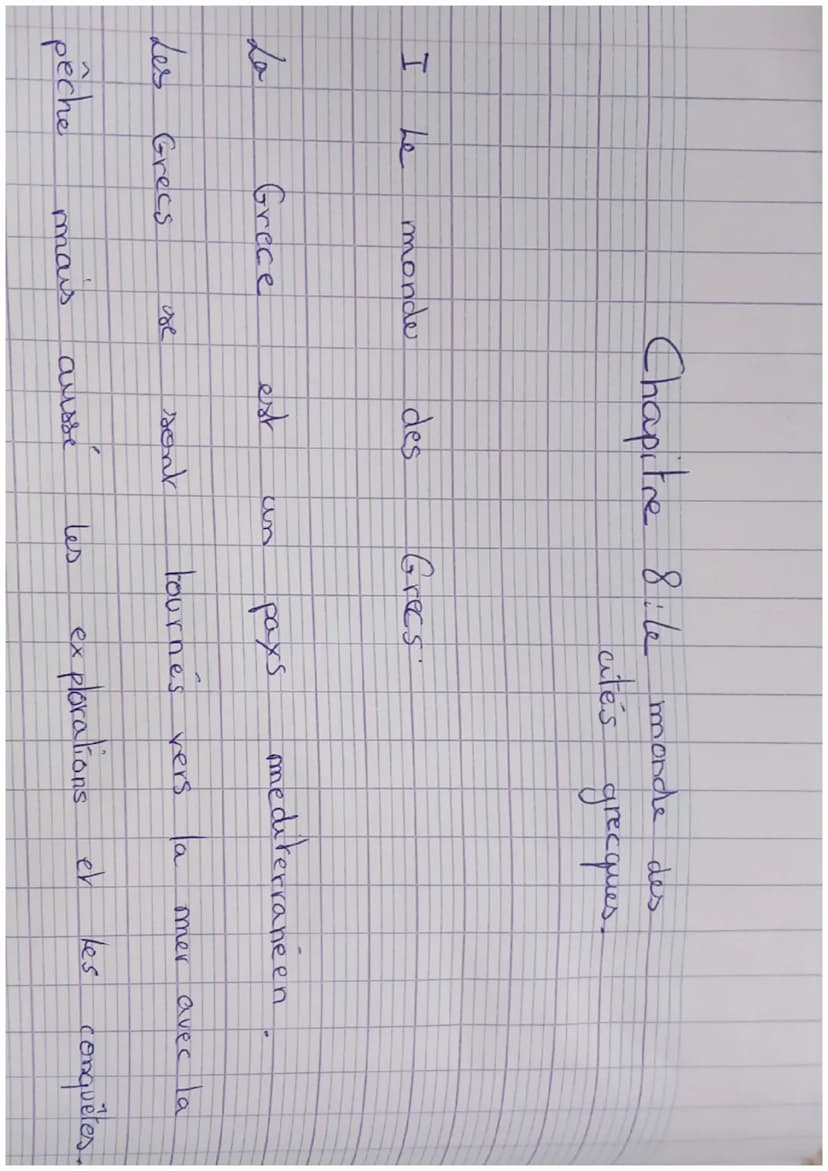 Chapitre 8 : le monde des
cités grecques.
I Le monde des Grecs.
La Grece est un pays mediterranéen.
Les Grecs se sont tournés vers la mer avec la
pêche mais aussé les explorations et les conquêtes.